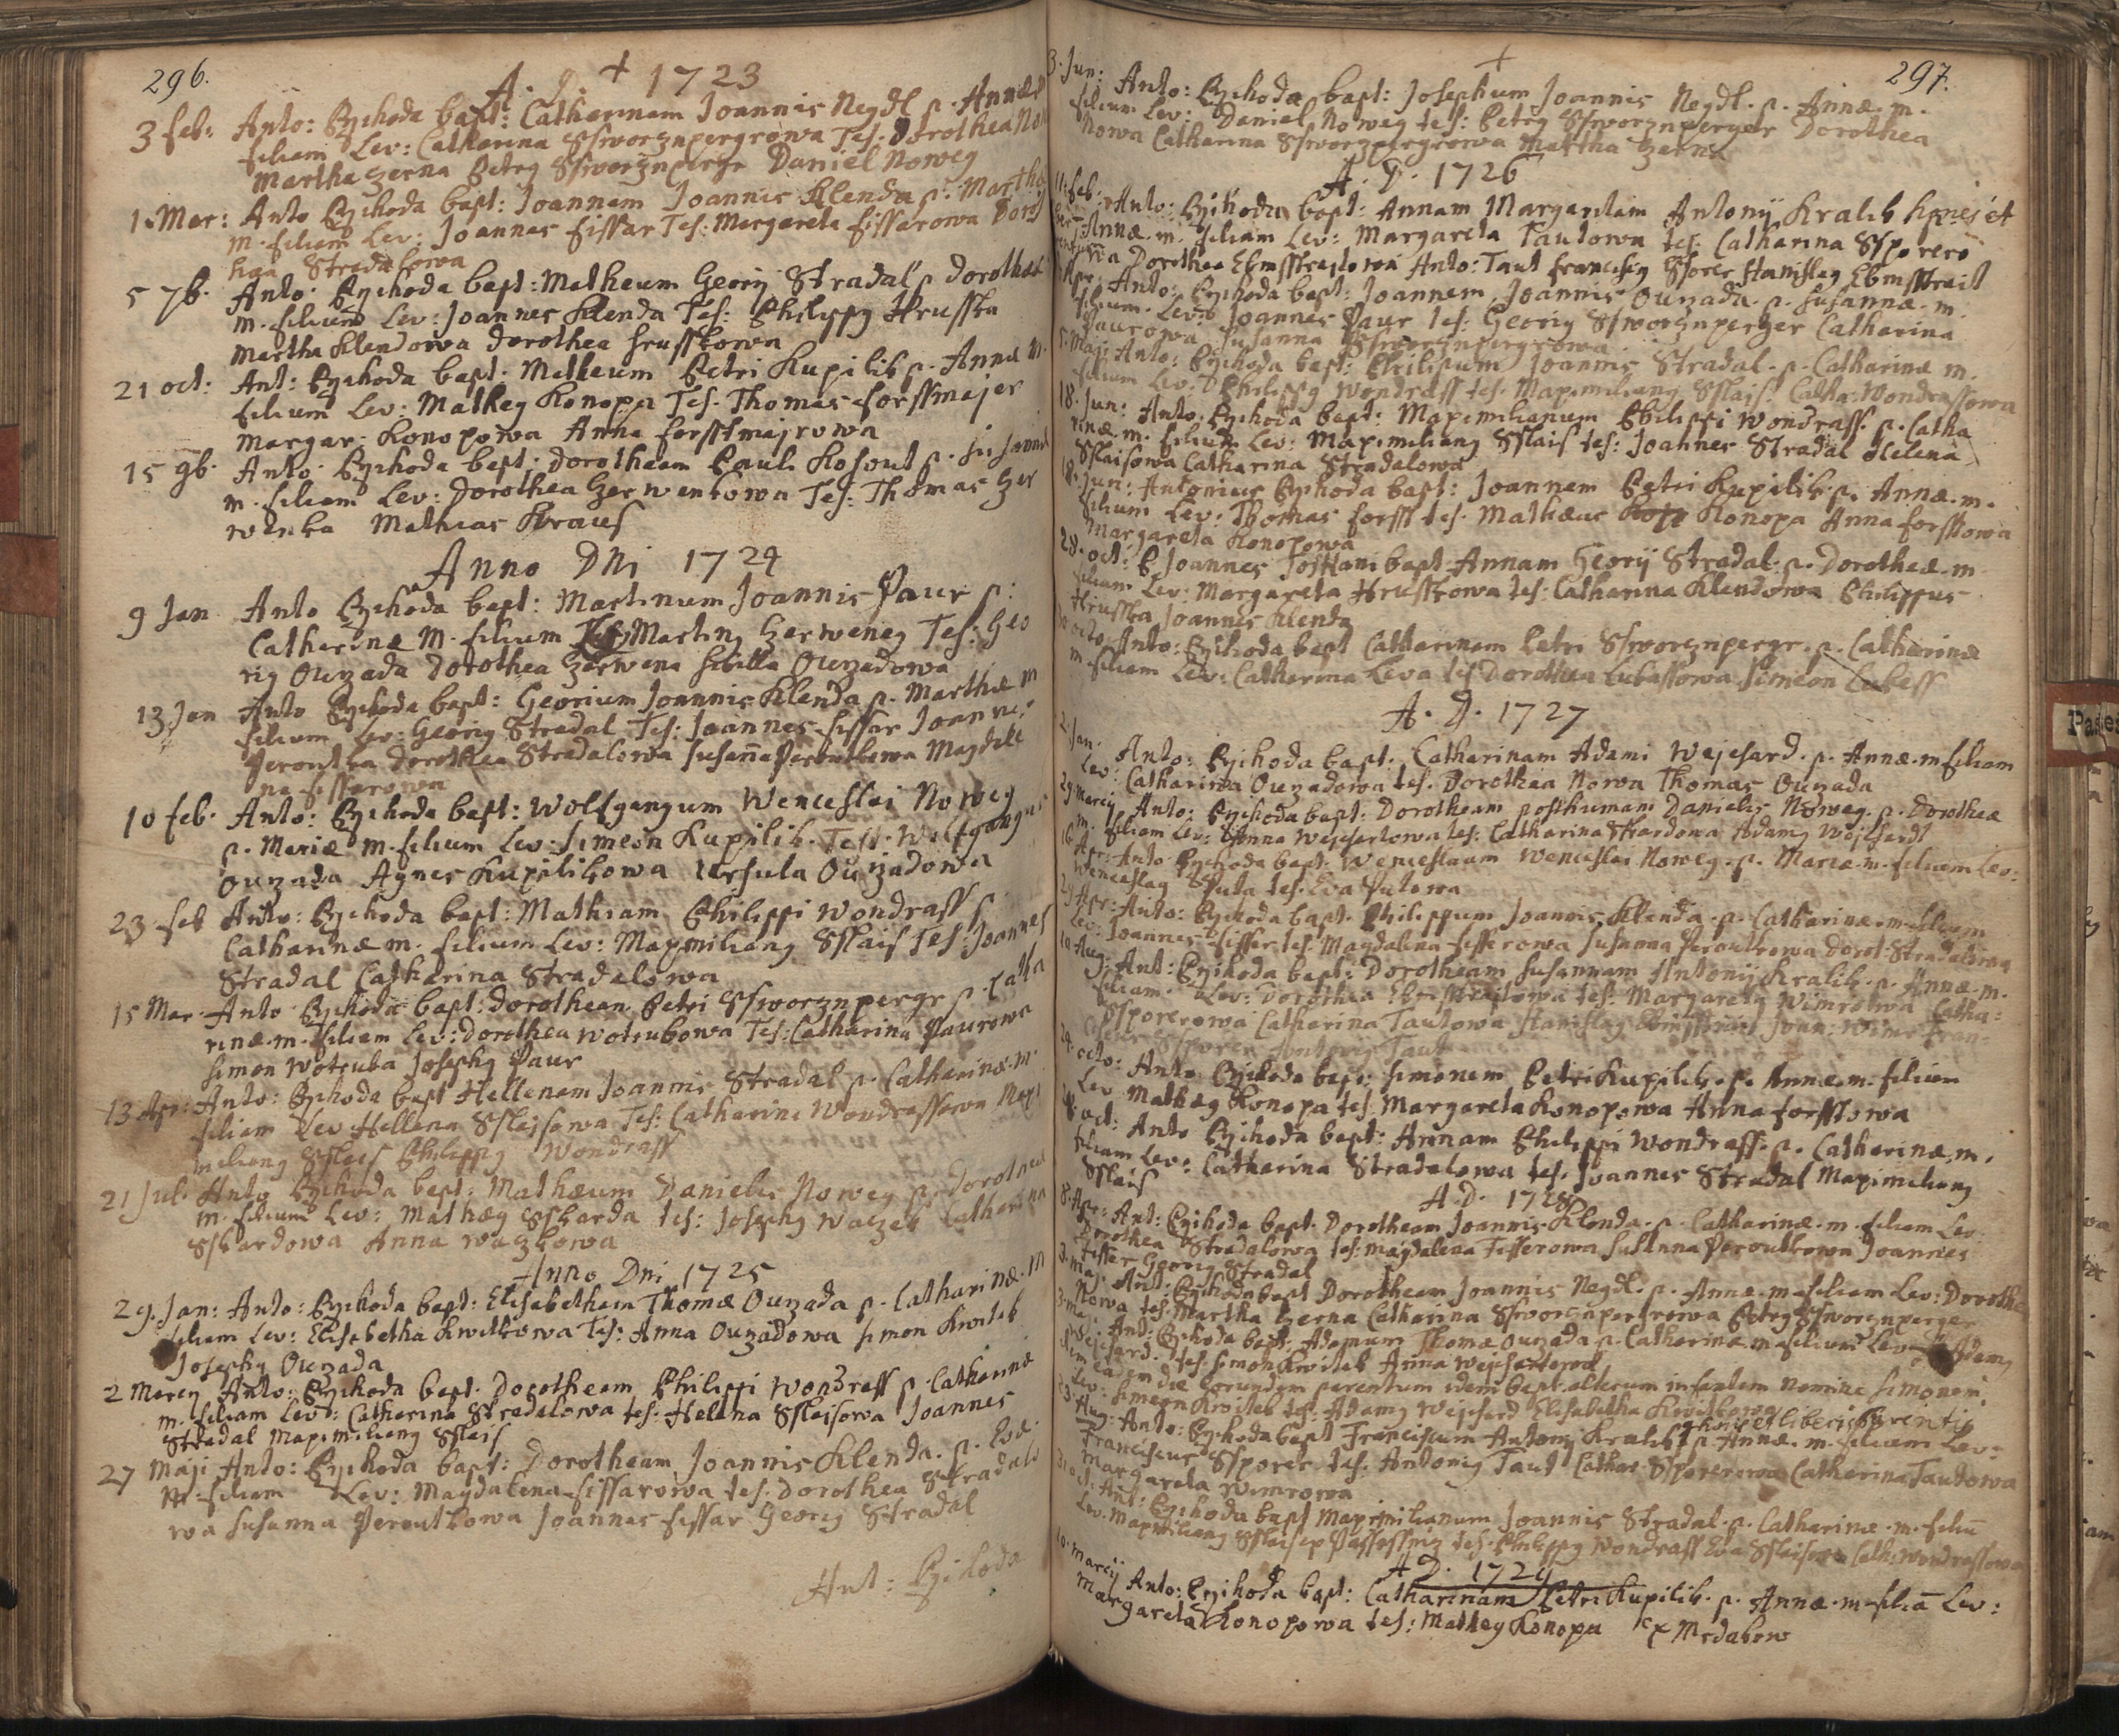 296.
A. D. + 1723
3 feb: Anto: Bychoda bapt: Catharinam Joannis Negdl p. Annæ
filiam Lev: Catharina Sswarznpergrowa Tes: Dorothea
Martha Zerna Petrg Sswarznpergr Daniel Noweg
1. Mar: Anto Bychoda bapt: Joannem Joannis Klenda p. Martha
m. filium Lev: Joannes fissar Tes: Margareta fissarowa Doro
thea Stradalowa
5 7b. Anto: Bychoda bapt: Matheum Georij Stradal p Dorotheæ
m. filium Lev: Joannes Klenda Tes: Philippg Hrusska
Martha Klendowa Dorothea hrusskowa
21 oct: Ant: Bychoda bapt. Matheum Petri Kupilik p. Annæ m.
filium Lev: Mathey Konopa Tes. Thomas forsstmajer
Margar: Konopowa Anna forsstmajrowa
15 9b. Anto: Bychoda bapt: Dorotheam Pauli Kosout p. Susannæ
m. filiam Lev: Dorothea Zerwenkowa Tes: Thomas Zer
wenka Mathias Kraus
Anno DNi 1724
9 Jan Anto Bychoda bapt: Martinum Joannis Paur p:
Catharinæ m. filium Marting Zerweneg Tes: Geo
rig Ouzada Dorothea Zerwena Sibilla Ouzadowa
13 Jan Anto Bychoda bapt: Georium Joannis Klenda p. Marthæ m
filium Lev: Georig Stradal Tes: Joannes fissar Joannes
Peroutka Dorothea Stradalowa Susana Peroutkowa Magdale
na fissarowa
10 feb. Anto: Bychoda bapt: Wolfgangum Wenceslai Noweg
p. Mariæ m. filium Lev: Simeon Kupilik. Tes: Wolfgangus
Ouzada Agnes Kupilikowa Ursula Ouzadowa
23 feb Anto: Bychoda bapt: Mathiam Philippi Wondrass p.
Catharinæ m. filium Lev: Maximiliang Sslais Tes: Joannes
Stradal Catharina Stradalowa
15 Mar. Anto Bychoda bapt: Dorotheam Petri Sswarznpergr p. Catha
rinæ. m. filiam Lev: Dorothea Wotrubowa Tes: Catharina Paurowa
Simon Wotruba Josephg Paur
13 Apr: Anto: Bychoda bapt Hellenam Joannis Stradal p. Catharinæ. m.
filiam Lev Hellena Sslaisowa Tes: Catharina Wondrassowa Maxi
miliang Sslais Philippg Wondrass
21 Jul. Anto Bychoda bapt: Mathæum Danielis Noweg p. Dorotheæ
m. filium Lev: Mathæg Sskarda tes: Josephg Waczek Catharina
Sskardowa Anna Waczkowa
Anno Dni 1725
29. Jan: Anto: Bychoda bapt: Elisabetham Thomæ Ouzada p. Catharinæ. m
filiam Lev: Elisabetha Kwitkowa Tes: Anna Ouzadowa Simon Kwitek
Josephg Ouzada
2 Marcij Anto: Bychoda bapt. Dorotheam Philippi Wondrass p. Catharinæ
m. filiam Lev: Catharina Stradalowa tes: Helena Sslaisowa Joannes
Stradal Maximiliang Sslais
27 Maji Anto: Bychoda bapt: Dorotheam Joannis Klenda. p. Evæ.
m. filiam Lev: Magdalena fissarowa tes: Dorothea Stradalo
wa Susanna Peroutkowa Joannes fissar Georig Stradal
Ant: Bychoda
297.
3. Jun: Anto: Bychoda bapt: Josephum Joannis Negdl. p. Annæ. m.
filium Lev: Daniel Noweg tes: Petrg Sswarznperger Dorothea
Nowa Catharina Sswarznpergrowa Martha Zerna
A. D. 1726
11. Feb. Anto: Bychoda bapt: Annam Margaritam Antonij Kralik
Annæ. m. filiam Lev: Margareta Tautowa tes: Catharina Ssporero
Dorothea Anto: Taut Stanislag
Apr. Anto: Bychoda bapt: Joannem Joannis Ouzada. p. Susannæ. m.
filium. Lev: Joannes Paur tes: Georig Sswarznperger Catharina
Paurowa Susanna Sswarznpergrowa
Maji Anto: Bychoda bapt: Philipum Joannis Stradal. p. Catharinæ m.
filium Lev: Philippg Wondrass tes. Maximiliang Sslais: Catha: Wondrassowa
18. Jun: Anto. Bychoda bapt: Maximilianum Philippi Wondrass. p. Catha
rinæ m. filium Lev: Maximiliang Sslais tes: Joannes Stradal Helena
Sslaisowa Catharina Stradalowa
18. Jun: Antonius Bychoda bapt: Joannem Petri Kupilik. p. Annæ. m.
filium Lev: Thomas forsst tes. Mathæus Konopa Anna forsstowa
Margareta Konopowa
28. oct: P Joannes bapt Annam Georij Stradal. p. Dorotheæ. m.
filiam Lev: Margareta Hrusskowa tes: Catharina Klendowa Philippus
Hrusska Joannes Klenda
octo Anto: Bychoda bapt Catharinam Petri Sswarznpergr. p. Catharinæ
m filiam Lev: Catharina Leva tes Dorothea Lukassowa Simeon Lukass
A. D. 1727
2. Jan. Anto: Bychoda bapt. Catharinam Adami Wejchard. p. Annæ. m filiam
Lev: Catharina Ouzadowa tes. Dorothea Nowa Thomas Ouzada
29 Marcij Anto: Bychoda bapt: Dorotheam posthumam Danielis Noweg. p. Dorotheæ
m. filiam Lev: Anna Wejchartowa tes: Catharina Skardowa Adamg Wejchard
16 Apr: Anto Bychoda bapt. Wenceslaum Wenceslai Noweg. p. Mariæ. m. filium Lev:
Wenceslag Puta tes. Eva Putowa
29 Apr: Anto: Bychoda bapt. Philippum Joannis Klenda. p. Catharinæ. m. filium
Lev: Joannes fisser tes. Magdalena fisserowa Susanna Peroutkowa Dorot: Stradalowa
10 Aug: Ant: Bychoda bapt: Dorotheam Susannam Antonij Kralik. p. Annæ. m.
filiam. Lev: Dorothea tes: Margareta Wimrowa Catha:
Ssporerowa Catharina Tautowa Stanislag Joan: Wimr Fran:
Ssporer Antonig Taut
octo: Anto Bychoda bapt: Simonem Petri Kupilik. p. Annæ. m. filium
Lev Mathæg Konopa tes. Margareta Konopowa Anna forsstowa
oct: Anto Bychoda bapt: Annam Philippi Wondrass. p. Catharinæ. m.
filiam Lev: Catharina Stradalowa tes. Joannes Stradal Maximiliang
Sslais
A. D. 1728
8. Apr: Ant: Bychoda bapt. Dorotheam Joannis Klenda. p. Catharinæ. m. filiam Lev:
Dorothea Stradalowa tes: Magdalena Fisserowa Susanna Peroutkowa Joannes
Fisser Georig Stradal
Maj. Ant: Bychoda bapt Dorotheam Joannis Negdl. p. Annæ. m filiam Lev: Dorothea
Nowa tes: Martha Zerna Catharina Sswarznpergrowa Petrg Sswarznperger
Ant: Bychoda bapt. Adamum Thomæ Ouzada p. Catharinæ m filium Lev: Adamg
Wejchard. tes. Simon Kwitek Anna Wejchartowa
eadem die eorundem parentum idem bapt. alterum infantem nomine Simonem
Lev: Simeon Kwitek tes: Adamg Wejchard Elisabetha Kwitkowa
Aug: Anto: Bychoda bapt Franciscum Antonij Kralik p. Annæ. m. filium Lev:
Franciscus Ssporer tes. Antonig Taut Cathar Ssporerowa Catharina Tautowa
Margareta Wimrowa
oct: Ant: Bychoda bapt Maximilianum Joannis Stradal. p. Catharinæ. m. filiu
Lev. Maximiliang Sslais tes. Philippg Wondrass Eva Sslaisowa Cath: Wondrassowa
A D. 1729
10. Marcij Anto: Bychoda bapt: Catharinam Petri Kupilik. p. Annæ. m. filia Lev:
Margareta Konopowa tes: Mathey Konopa ex Mrdakow